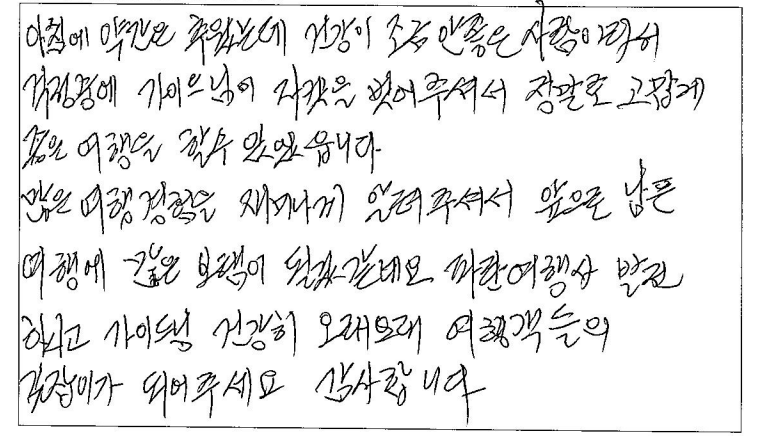 아침에 약간은 추웠는데 건강이 조금 안좋은 사람이라서
걱정중에 가이드님이 자켓을 벗어주셔서 정말로 고맙게
좋은 여행을 할수 있었읍니다
많은 여행경험을 재미나게 알려주셔서 앞으로 남은
여행에 많은 보탬이 될것 같네요 파란여행사 발전
하시고 가이드님 건강히 오래오래 여행객들의
길잡이가 되어주세요 감사합니다